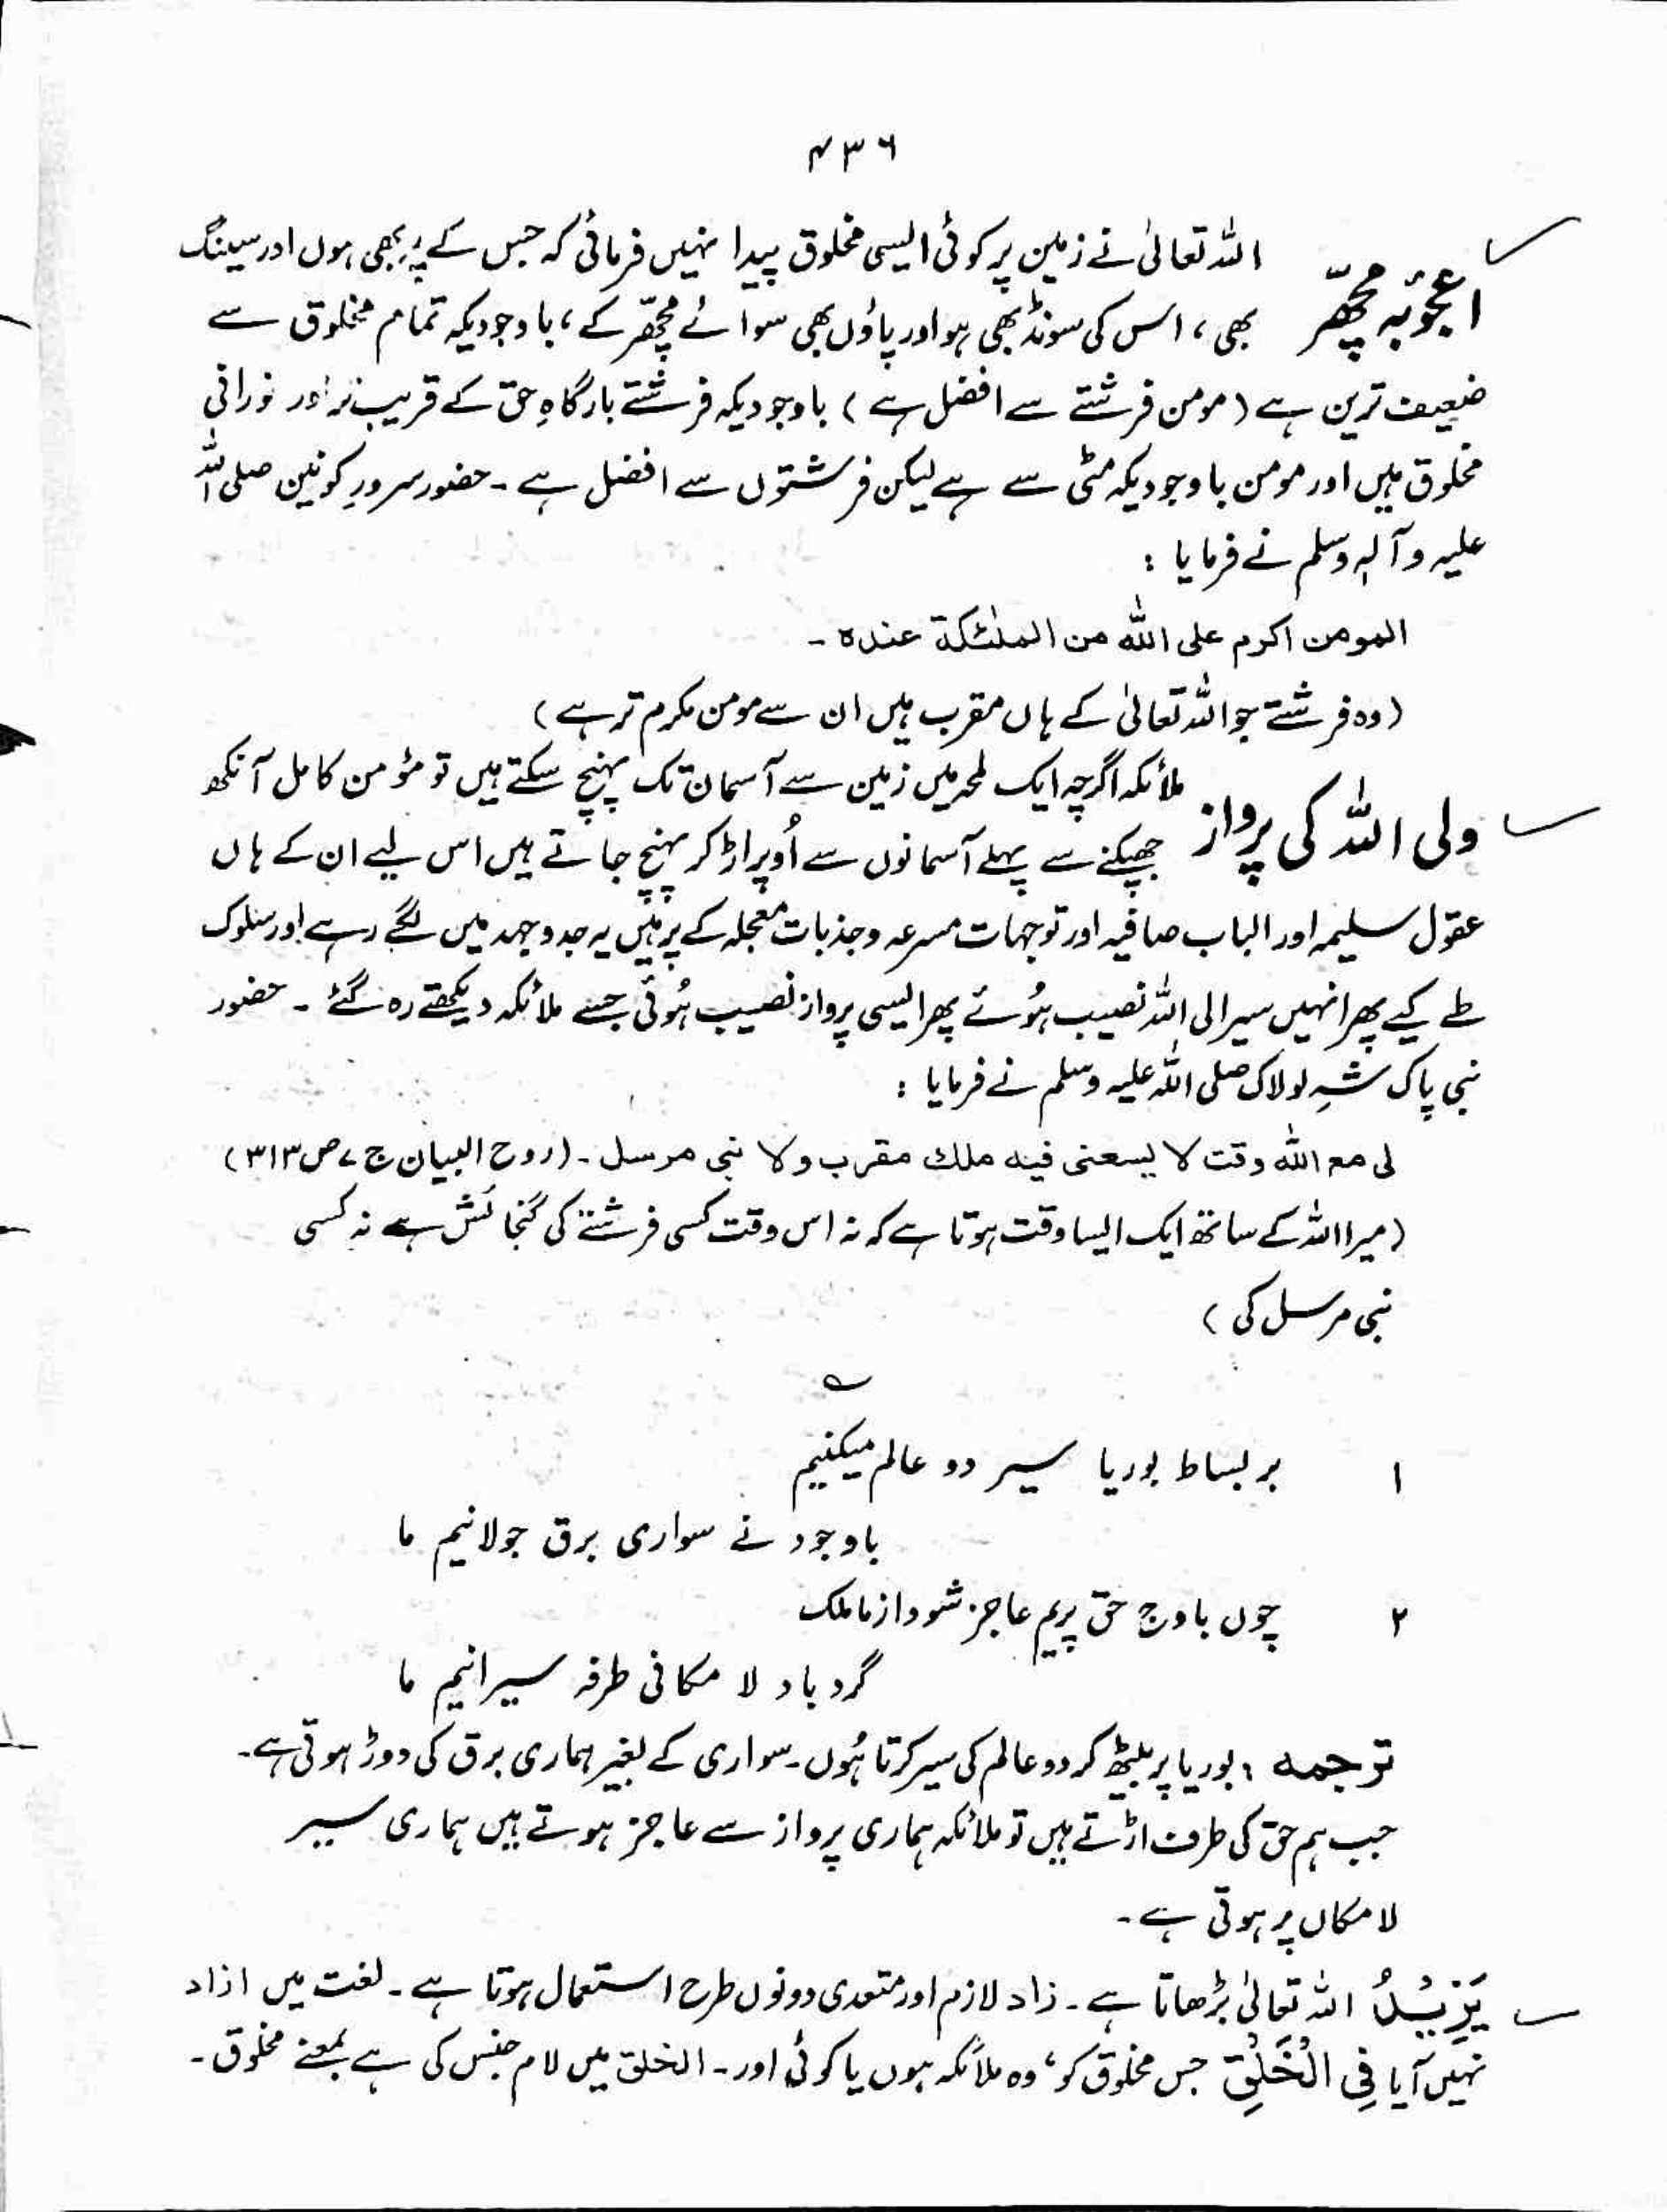 ۴۳۶
اعجوبہ مچھّر
اللہ تعالیٰ نے زمین پر کوئی ایسی مخلوق پیدا نہیں فرمائی کہ جس کے پر بھی ہوں اور سینگ
بھی، اس کی سونڈ بھی ہو اور پاؤں بھی سوائے مچھّر کے، باوجودیکہ تمام مخلوق سے
ضعیف ترین ہے (مومن فرشتے سے افضل ہے) باوجودیکہ فرشتے بارگاہِ حق کے قریب تر اور نورانی
مخلوق ہیں اور مومن باوجودیکہ مٹی سے ہے لیکن فرشتوں سے افضل ہے۔ حضور سرورِ کونین صلی اللہ
علیہ وآلہٖ وسلم نے فرمایا :
المومن اکرم علی اللہ من الملٰئکۃ عندہ۔
(وہ فرشتے جو اللہ تعالیٰ کے ہاں مقرب ہیں ان سے مومن مکرم تر ہے)
ولی اللہ کی پرواز
ملائکہ اگرچہ ایک لمحہ میں زمین سے آسمان تک پہنچ سکتے ہیں تو مؤمن کامل آنکھ
جھپکنے سے پہلے آسمانوں سے اُوپر اڑ کر پہنچ جاتے ہیں اس لیے ان کے ہاں
عقول سلیمہ اور الباب صافیہ اور توجہات مسرعہ وجذبات معجلہ کے پر ہیں یہ جدوجہد میں لگے رہے اور سلوک
طے کیے پھر انہیں سیر الی اللہ نصیب ہُوئے پھر ایسی پرواز نصیب ہُوئی جسے ملائکہ دیکھتے رہ گئے۔ حضور
نبی پاک شہِ لولاک صلی اللہ علیہ وسلم نے فرمایا :
لی مع اللہ وقت لا یسعنی فیہ ملك مقرب ولا نبی مرسل۔ (روح البیان ج ۷ ص ۳۱۳)
(میرا اللہ کے ساتھ ایک ایسا وقت ہوتا ہے کہ نہ اس وقت کسی فرشتے کی گنجائش ہے نہ کسی
نبی مرسل کی)
؎
۱ بر بساط بوریا سیر دو عالم میکنیم
باوجود نے سواری برق جولانیم ما
۲ چوں باوج حق پریم عاجز شود از ما ملک
گرد باد لا مکانی طرفہ سیرانیم ما
ترجمہ : بوریا پر بیٹھ کر دو عالم کی سیر کرتا ہُوں۔ سواری کے بغیر ہماری برق کی دوڑ ہوتی ہے۔
جب ہم حق کی طرف اڑتے ہیں تو ملائکہ ہماری پرواز سے عاجز ہوتے ہیں ہماری سیر
لا مکاں پر ہوتی ہے۔
یَزِیْدُ اللہ تعالیٰ بڑھاتا ہے۔ زاد لازم اور متعدی دونوں طرح استعمال ہوتا ہے۔ لغت میں ازاد
نہیں آیا فِی الْخَلْقِ جس مخلوق کو، وہ ملائکہ ہوں یا کوئی اور۔ الخلق میں لام جنس کی ہے بمعنے مخلوق۔